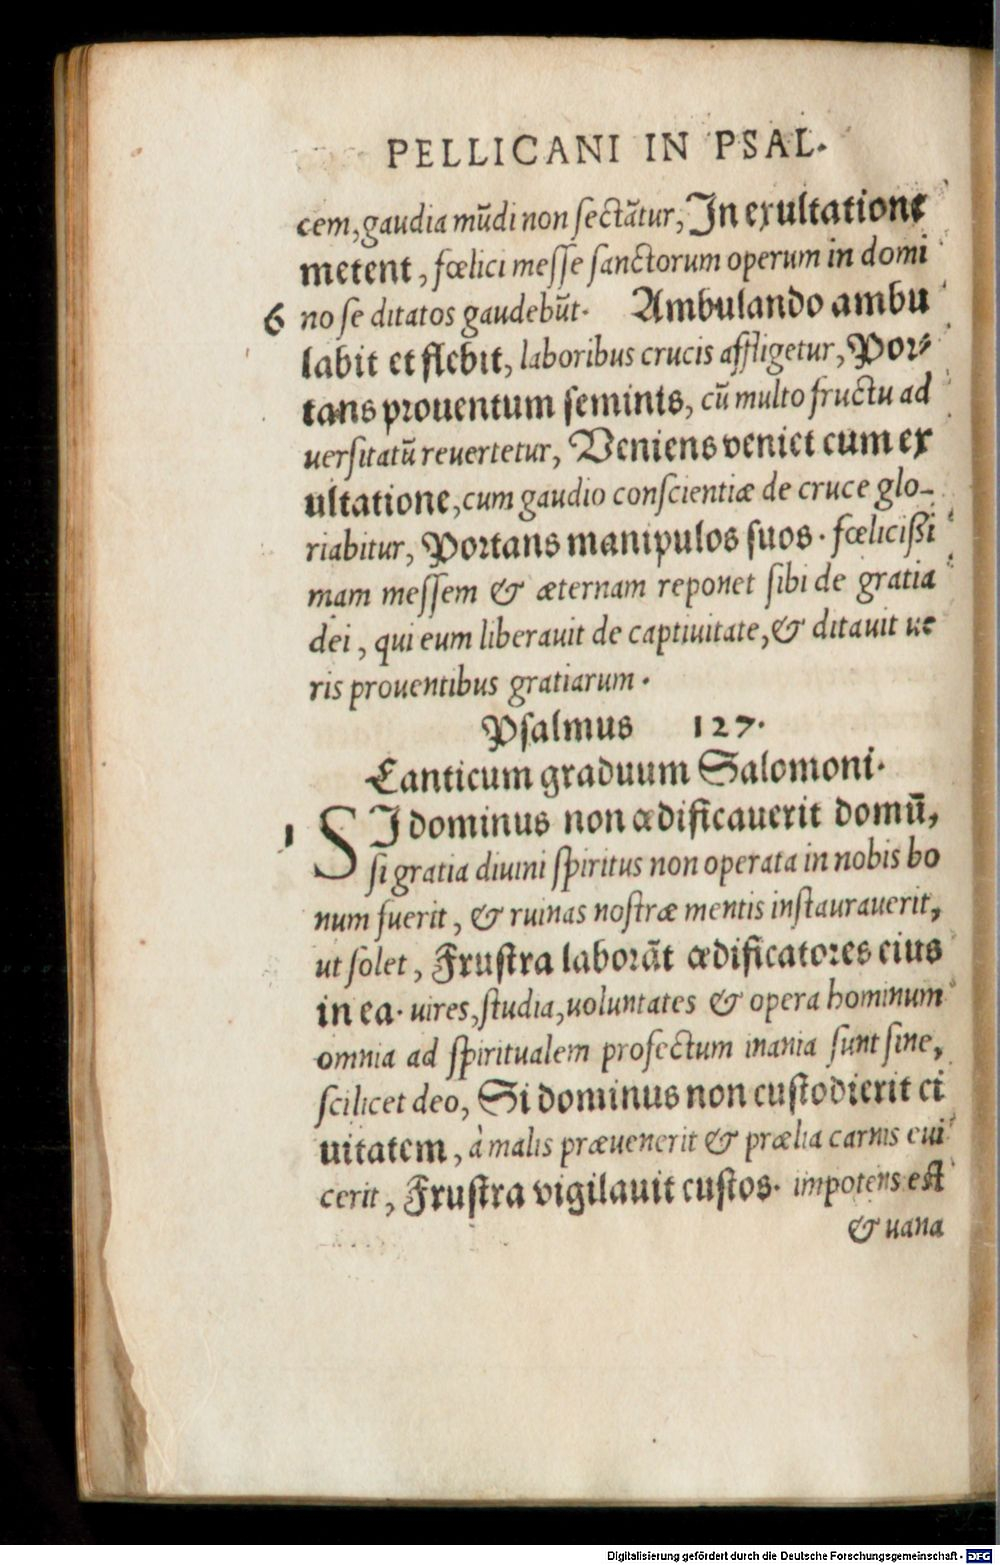 PELLICANI IN PSAL.
cem, gaudia mũdi non sectãtur, In exultatione
metent, fœlici messe sanctorum operum in domi
6 no se ditatos gaudebũt. Ambulando ambu
labit et flebit, laboribus crucis affligetur, Por⸗
tans prouentum seminis, cũ multo fructu ad
uersitatũ reuertetur, Veniens veniet cum ex
ultatione, cum gaudio conscientiæ de cruce glo-
riabitur, Portans manipulos suos. fœlicißi
mam messem & æternam reponet sibi de gratia
dei, qui eum liberauit de captiuitate, & ditauit ue
ris prouentibus gratiarum.
Psalmus 127.
Canticum graduum Salomoni.
1 SI dominus non ædificauerit domũ,
si gratia diuini spiritus non operata in nobis bo
num fuerit, & ruinas nostræ mentis instaurauerit,
ut solet, Frustra laborãt ædificatores eius
in ea. uires, studia, uoluntates & opera hominum
omnia ad spiritualem profectum inania sunt sine,
scilicet deo, Si dominus non custodierit ci
uitatem, à malis præuenerit & prælia carnis eui
cerit, Frustra vigilauit custos. impotens est
& uana
Digitalisierung gefördert durch die Deutsche Forschungsgemeinschaft - DFG